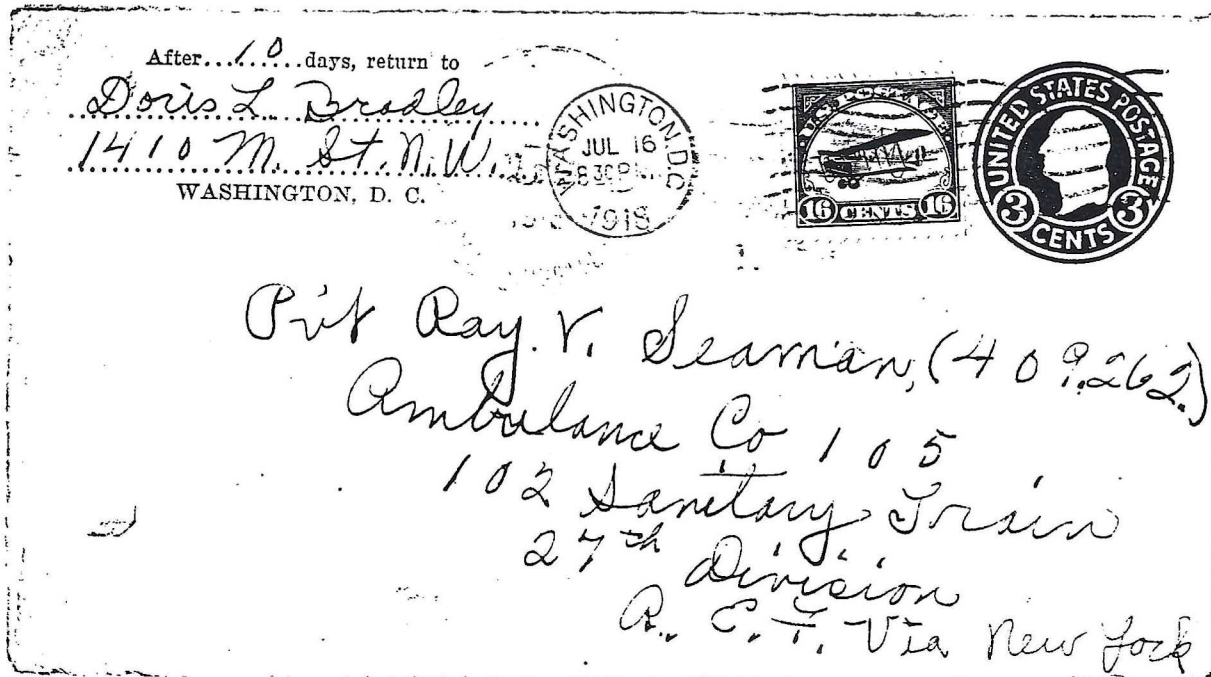 After...10...days, return to
Doris L. Bradley
1410 M. St. N.W.
WASHINGTON, D. C.
WASHINGTON, D.C.
JUL 16
8 30 PM
1918
U.S. POSTAGE
16 CENTS 16
UNITED STATES POSTAGE
3 CENTS 3
Pvt Ray. V. Seaman, (409.262.)
Ambulance Co 105
102 Sanitary Train
27th Division
A. E. F. Via New York